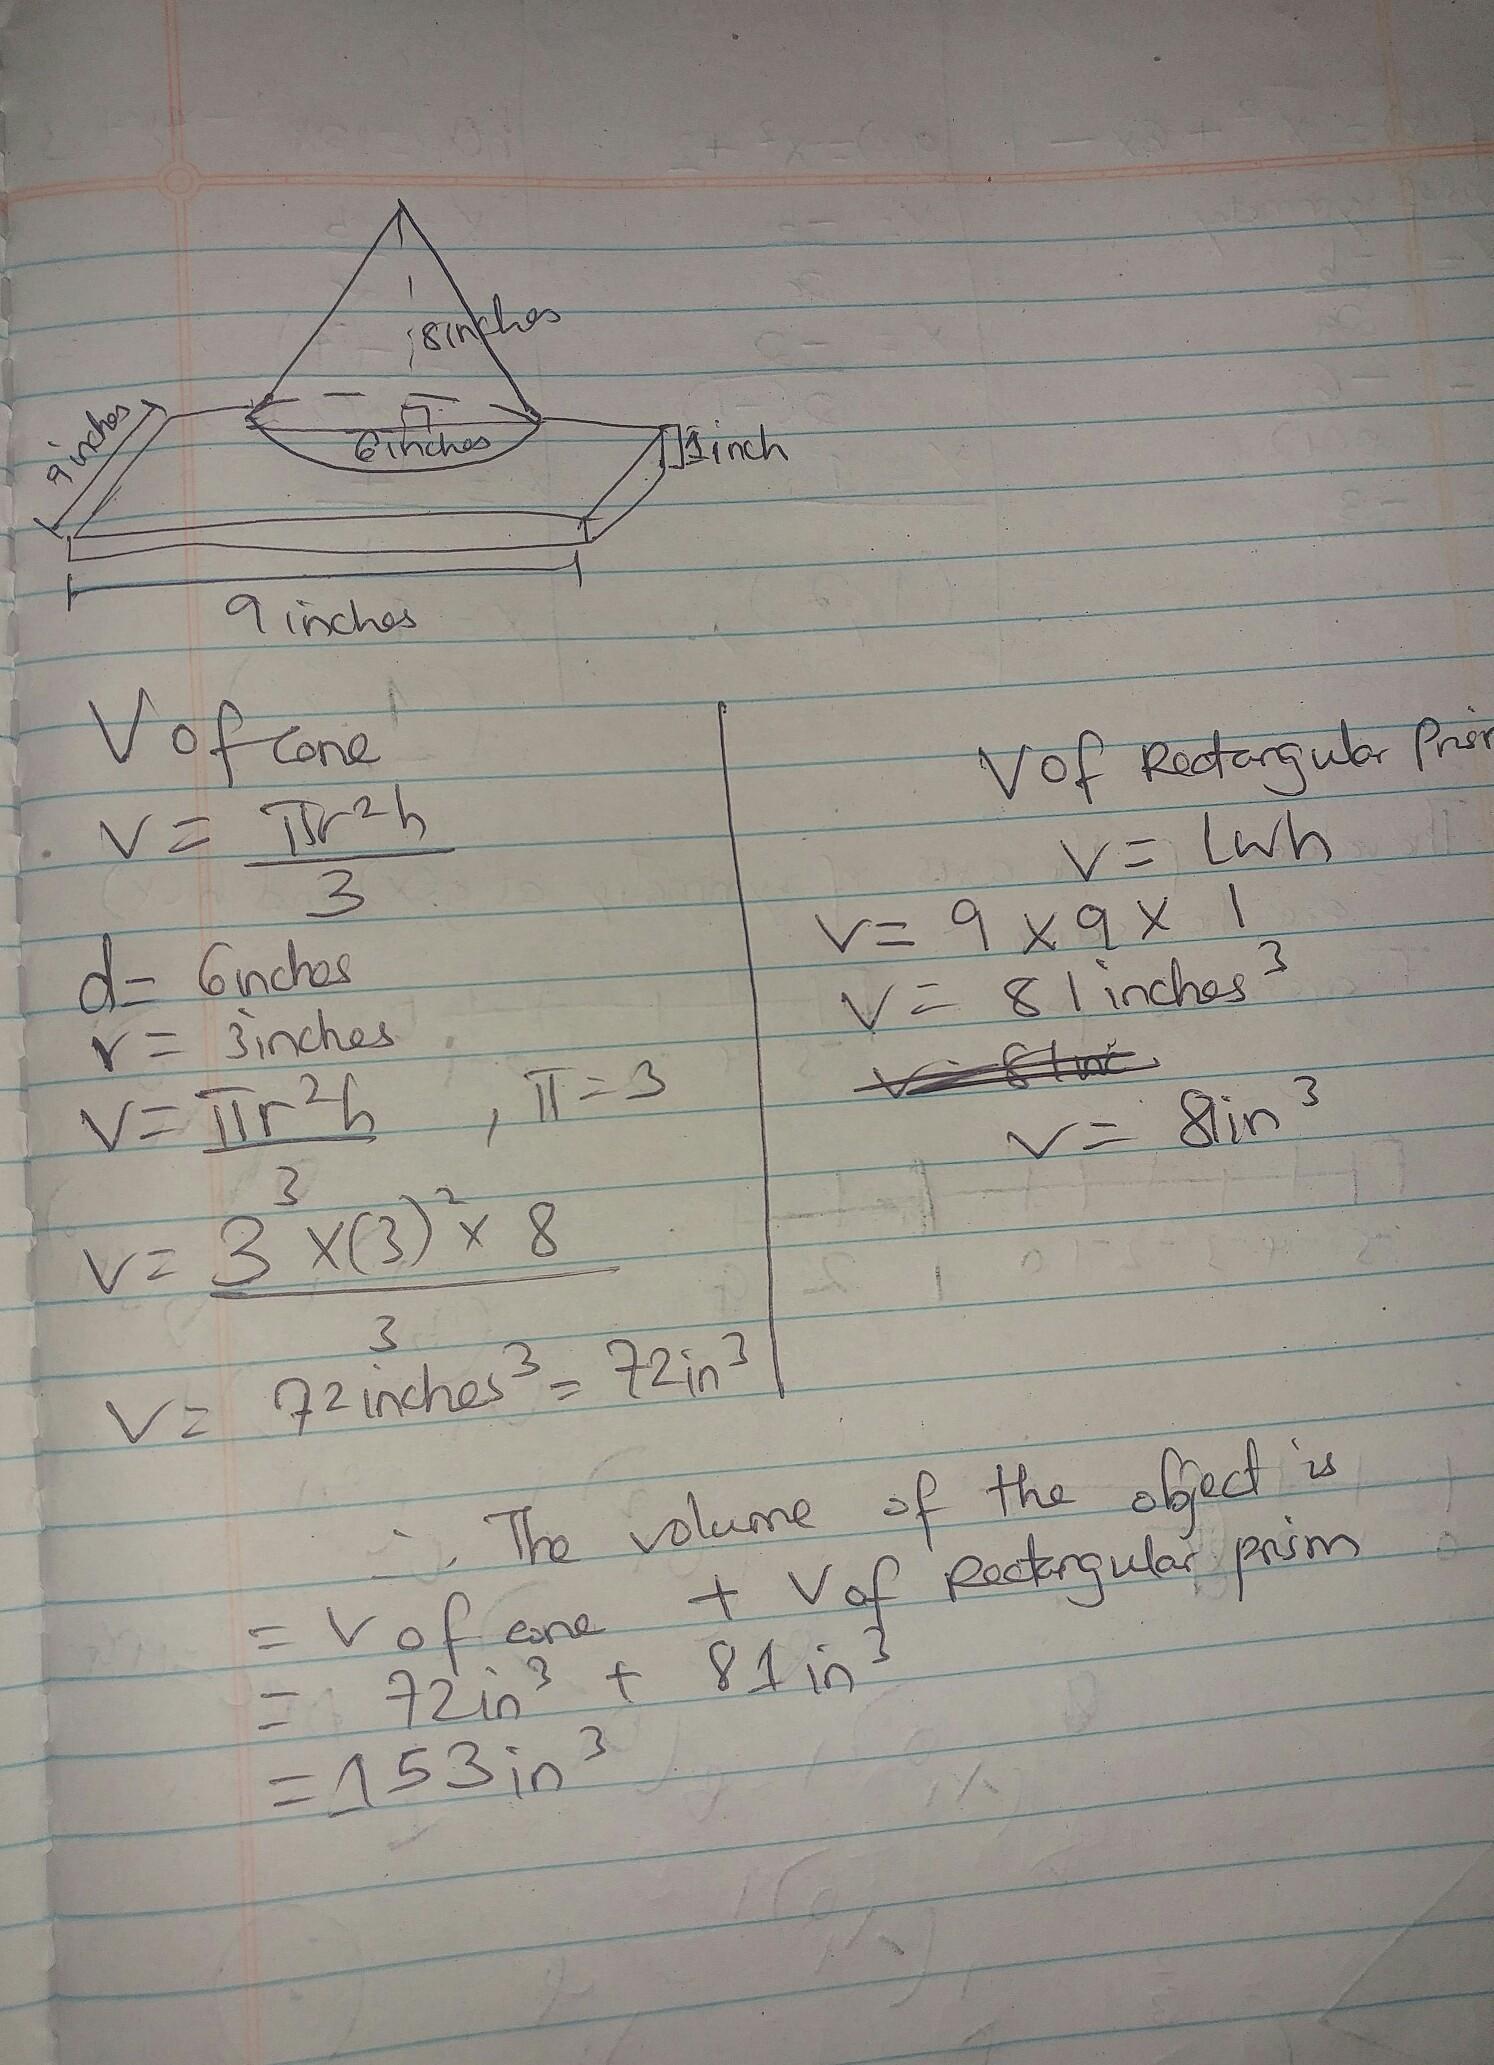 8inches
9 inches
6inches
1inch
9 inches
V of cone
V = πr²h
3
d= 6inches
r = 3inches
V= πr²h , π=3
3
V= 3 x(3)² x 8
3
V= 72inches³ = 72in³
V of Rectangular Prism
V = lwh
V= 9 x 9 x 1
V= 81inches³
V= 81in³
∴ The volume of the object is
= V of cone + V of Rectangular prism
= 72in³ + 81in³
= 153in³